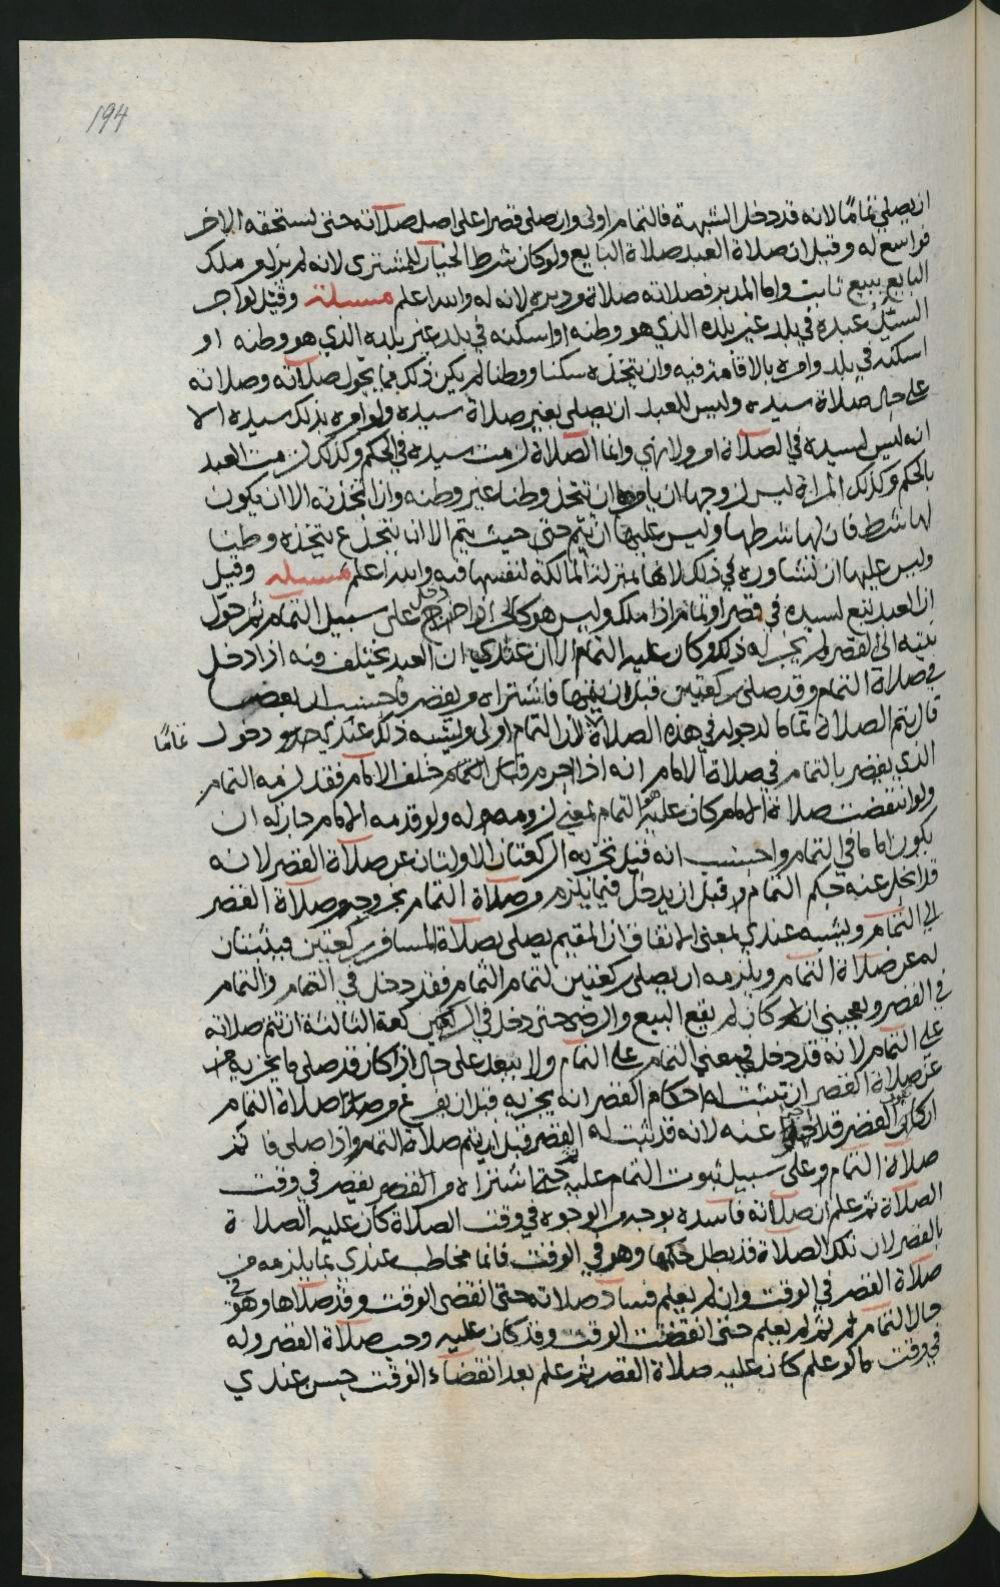 194
ان يصلي تمامًا لانه قد دخل الشبهة فالتمام اولى وان صلى قصرا على اصل صلاته حتى يستحقه الاخر
فواسع له وقيل ان صلاة العبد صلاة البايع ولو كان شرط الخيار للمشتري لانه لم يزل ملك
البايع ببيع ثابت واما المدبر فصلاته صلاة مدبره لانه له والله اعلم مسئلة وقيل لو اخرج
السيد عبده في بلد غير بلده الذي هو وطنه او اسكنه في بلد غير بلده الذي هو وطنه او
اسكنه في بلد وامره بالاقامة فيه وان يتخذه سكنا ووطنا لم يكن ذلك مما يحول صلاته وصلاته
على حال صلاة سيده وليس للعبد ان يصلي بغير صلاة سيده ولو امره بذلك سيده الا
انه ليس لسيده في الصلاة امر ولا نهي وانما الصلاة لزمت سيده في الحكم وكذلك لزمت العبد
بالحكم وكذلك المراة ليس لزوجها ان يامرها ان تتخذ وطنا غير وطنه وان اتخذته الا ان يكون
لها شرط فان لها شرطها وليس عليها ان تتم حتى حيث يتم الا ان يتخذه وطنا
وليس عليها ان تشاوره في ذلك لانها بمنزلة المالكة لنفسها فيه والله اعلم مسئلة وقيل
ان العبد تبع لسيده في قصر او تمام اذا ملك وليس هو كالحر اذا دخل على سبيل التمام ثم حول
نيته الى القصر لم يجز له ذلك وكان عليه التمام الا ان عندي ان العبد يختلف فيه اذا دخل
في صلاة التمام وقد صلى ركعتين قبل ان يتمها فاشتراه من يقصر فاحسب ان بعضا
قال يتم الصلاة تماما لدخوله في هذه الصلاة لان التمام اولى ويشبه ذلك عندي دخول تمامًا
الذي يقصر بالتمام في صلاة الامام انه اذا احرم خلف الامام فقد لزمه التمام
ولو انتقضت صلاة الامام كان عليه هو التمام لمعنى لزومه له ولو قدمه الامام جاز له ان
يكون اماما في التمام واحسب انه قيل تجزيه الركعتان الاولتان عن صلاة القصر لانه
قد انحل عنه حكم التمام من قبل ان يدخل فيما يلزم من صلاة التمام بخروجه من صلاة القصر
الى التمام ويشبه عندي بمعنى الاتفاق ان المقيم يصلي بصلاة المسافر ركعتين فيثبتان
له عن صلاة التمام ويلزمه ان يصلي ركعتين لتمام التمام فقد دخل في التمام والتمام
في القصر ويعجبني ان كان لم يقع البيع والرضى حتى دخل في الركعة الثالثة ان تتم صلاته
على التمام لانه قد دخل في معنى التمام على التمام ولا يبعد على حال اذا كان قد صلى ما يجزيه من
عن صلاة القصر ان تثبت له احكام القصر انه يجزيه قبل ان يفرغ من صلاة التمام
ان كان القصر قد عنه لانه قد ثبت له القصر قبل ان يتم صلاة التمام واذا صلى فاتم
صلاة التمام وعلى سبيل ثبوت التمام عليه حتى اشتراه من القصر يقصر في وقت
الصلاة ثم علم ان صلاته فاسدة بوجه من الوجوه في وقت الصلاة كان عليه الصلاة
بالقصر لان تلك الصلاة قد بطل حكمها وهو في الوقت فانما مخاطب عندي بما يلزمه من
صلاة القصر في الوقت وان لم يعلم فساد صلاته حتى انقضى الوقت وقد صلاها وهو في
حال التمام ثم لم يعلم حتى انقضت الوقت وقد كان عليه وجب صلاة القصر وله
في وقت ما لو علم كان عليه صلاة القصر ثم علم بعد انقضاء الوقت حسن عندي